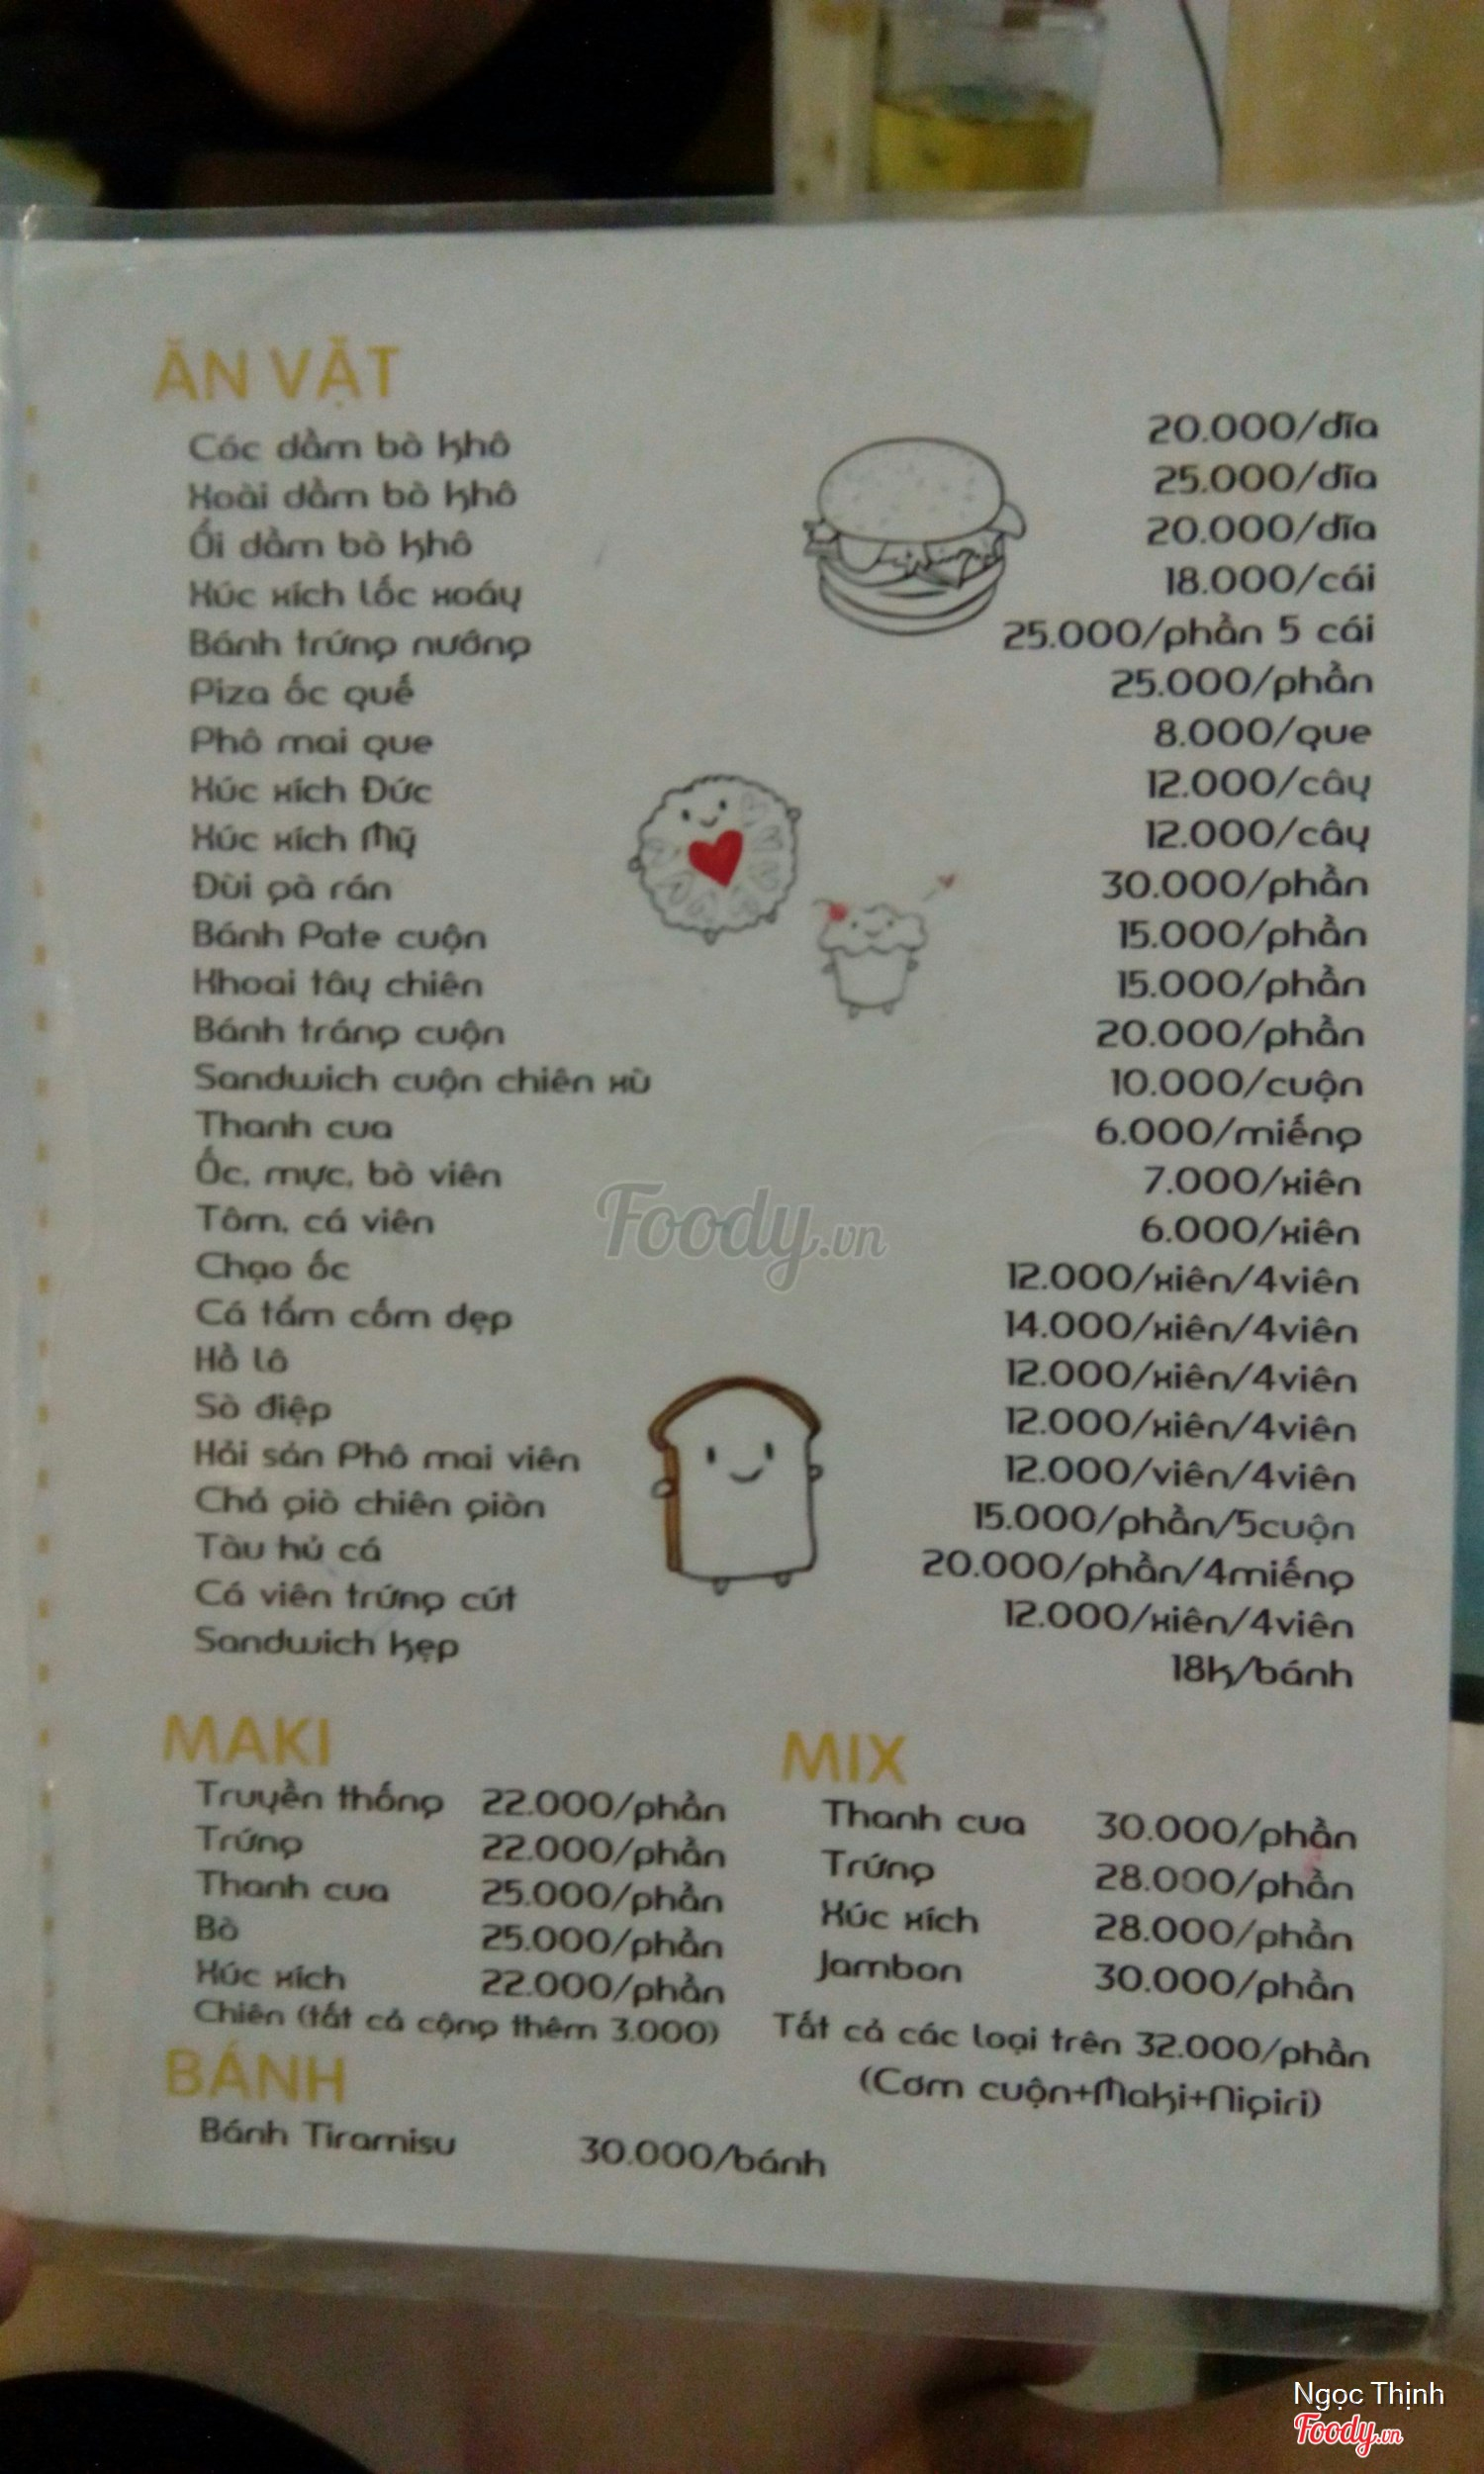 ĂN VẶT
Cóc dầm bò khô 20.000/đĩa
Xoài dầm bò khô 25.000/đĩa
Ổi dầm bò khô 20.000/đĩa
Xúc xích lốc xoáy 18.000/cái
Bánh trứng nướng 25.000/phần 5 cái
Piza ốc quế 25.000/phần
Phô mai que 8.000/que
Xúc xích Đức 12.000/cây
Xúc xích Mỹ 12.000/cây
Đùi gà rán 30.000/phần
Bánh Pate cuộn 15.000/phần
Khoai tây chiên 15.000/phần
Bánh tráng cuộn 20.000/phần
Sandwich cuộn chiên xù 10.000/cuộn
Thanh cua 6.000/miếng
Ốc, mực, bò viên 7.000/xiên
Tôm, cá viên 6.000/xiên
Chạo ốc 12.000/xiên/4viên
Cá tẩm cốm dẹp 14.000/xiên/4viên
Hồ lô 12.000/xiên/4viên
Sò điệp 12.000/xiên/4viên
Hải sản Phô mai viên 12.000/viên/4viên
Chả giò chiên giòn 15.000/phần/5cuộn
Tàu hủ cá 20.000/phần/4miếng
Cá viên trứng cút 12.000/xiên/4viên
Sandwich kẹp 18k/bánh
MAKI
Truyền thống 22.000/phần
Trứng 22.000/phần
Thanh cua 25.000/phần
Bò 25.000/phần
Xúc xích 22.000/phần
Chiên (tất cả cộng thêm 3.000)
MIX
Thanh cua 30.000/phần
Trứng 28.000/phần
Xúc xích 28.000/phần
Jambon 30.000/phần
Tất cả các loại trên 32.000/phần
(Cơm cuộn+Maki+Nigiri)
BÁNH
Bánh Tiramisu 30.000/bánh
Foody.vn
Ngọc Thịnh
Foody.vn